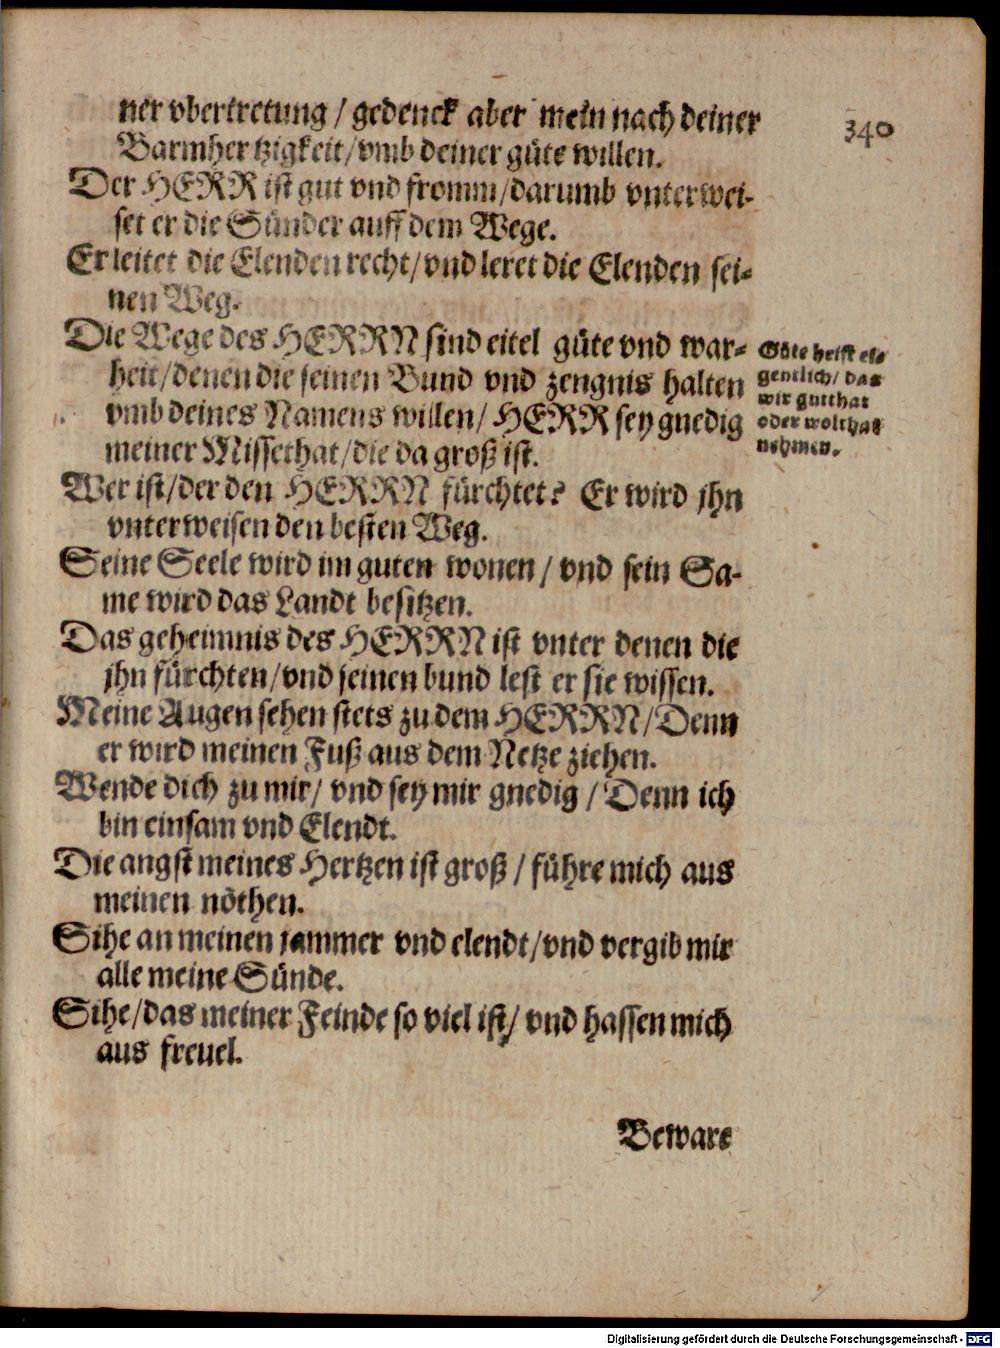 340
ner vbertretung / gedenck aber mein nach deiner
Barmhertzigkeit / vmb deiner güte willen.
Der HERR ist gut vnd fromm / darumb vnterwei-
set er die Sünder auff dem Wege.
Er leitet die Elenden recht / vnd leret die Elenden sei-
nen Weg.
Die Wege des HERRN sind eitel güte vnd war-
heit / denen die seinen Bund vnd zengnis halten
vmb deines Namens willen / HERR sey gnedig
meiner Missethat / die da groß ist.
Wer ist / der den HERRN fürchtet? Er wird jhn
vnterweisen den besten Weg.
Seine Seele wird im guten wonen / vnd sein Sa-
me wird das Landt besitzen.
Das geheimnis des HERRN ist vnter denen die
jhn fürchten / vnd seinen bund lest er sie wissen.
Meine Augen sehen stets zu dem HERRN / Denn
er wird meinen Fuß aus dem Netze ziehen.
Wende dich zu mir / vnd sey mir gnedig / Denn ich
bin einsam vnd Elendt.
Die angst meines Hertzen ist groß / führe mich aus
meinen nöthen.
Sihe an meinen jammer vnd elendt / vnd vergib mir
alle meine Sünde.
Sihe / das meiner Feinde so viel ist / vnd hassen mich
aus freuel.
Beware
Güte heist ei-
gentlich / das
wir gutthat
oder wolthat
nehmen.
Digitalisierung gefördert durch die Deutsche Forschungsgemeinschaft - DFG